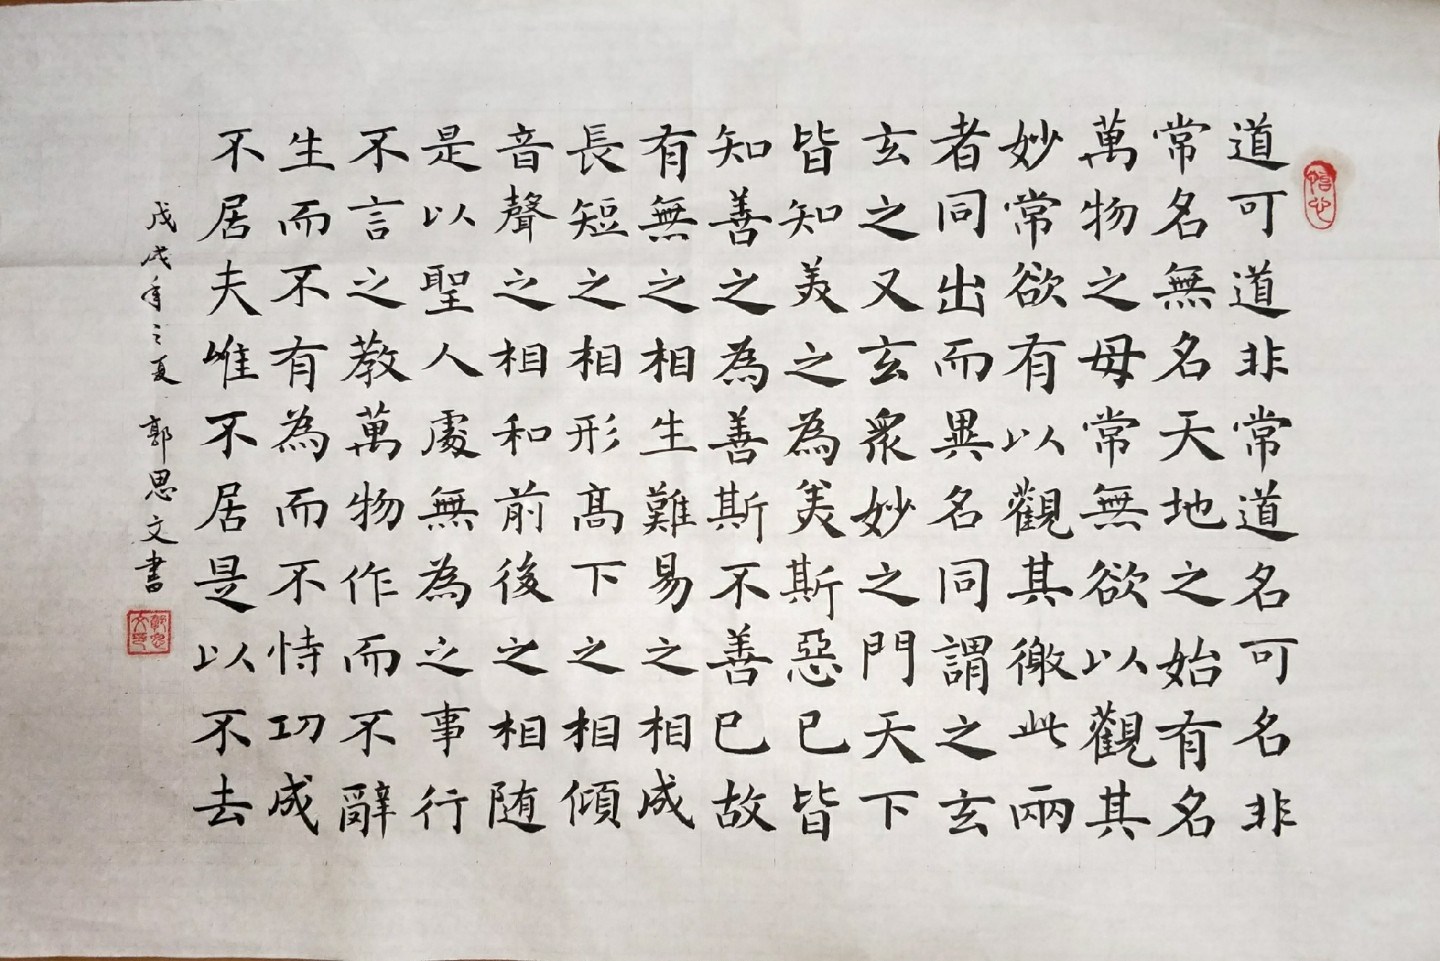 道可道非常道名可名非
常名無名天地之始有名
萬物之母常無欲以觀其
妙常欲有以觀其徼此兩
者同出而異名同謂之玄
玄之又玄衆妙之門天下
皆知美之為美斯惡已皆
知善之為善斯不善已故
有無之相生難易之相成
長短之相形高下之相傾
音聲之相和前後之相随
是以聖人處無為之事行
不言之教萬物作而不辭
生而不有為而不恃功成
不居夫唯不居是以不去
戊戌年之夏 郭思文書